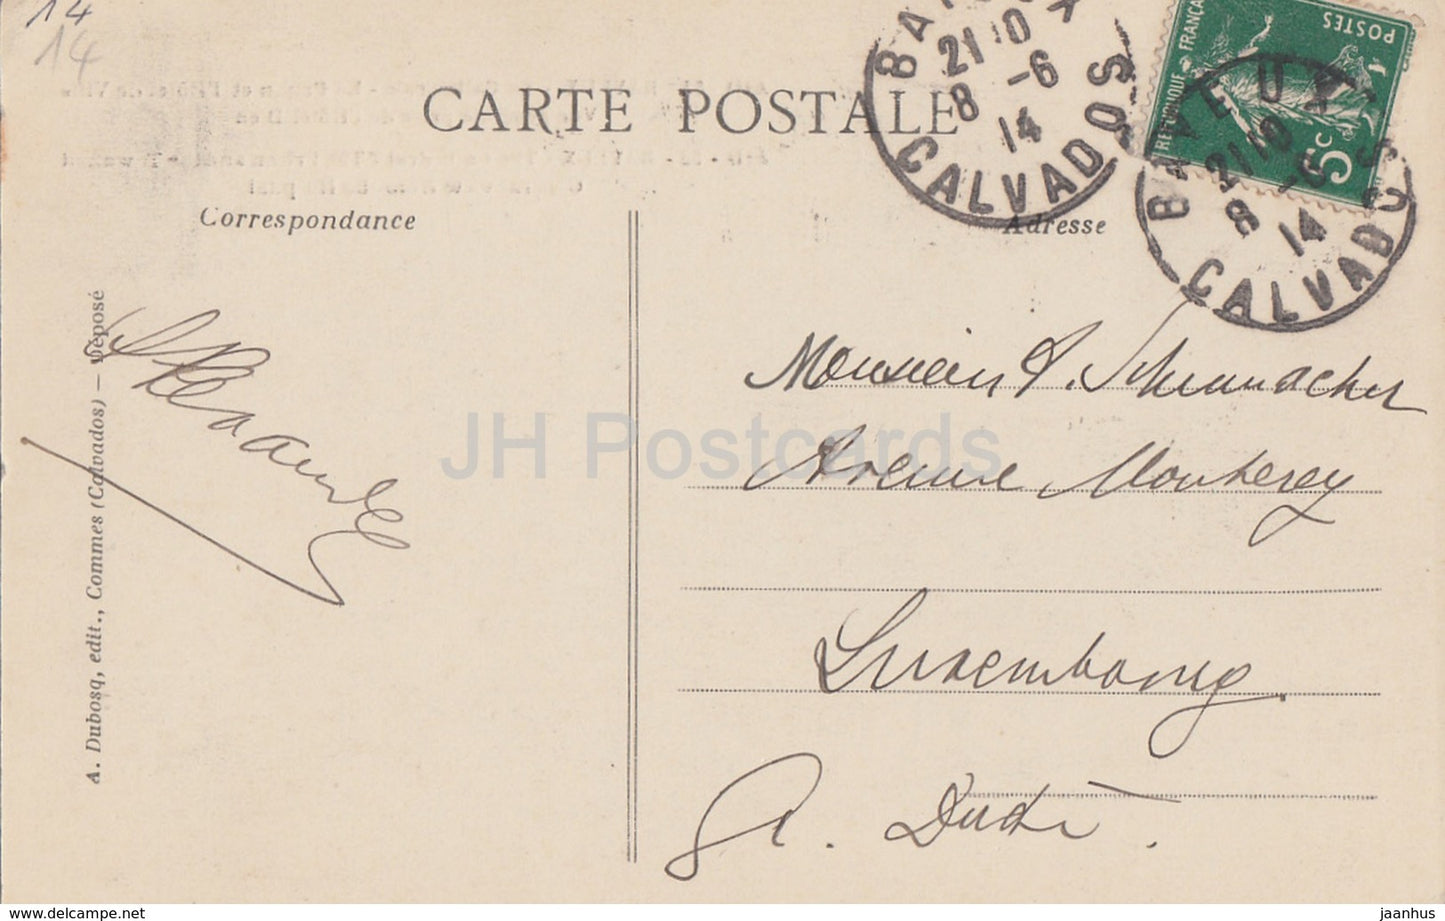 14
14
CARTE POSTALE
Correspondance
Adresse
BAYEUX
21 10
8 -6
14
CALVADOS
BAYEUX
21 10
8 -6
14
CALVADOS
REPUBLIQUE FRANÇAISE
POSTES
5c
A. Dubosq, edit., Commes (Calvados) — Déposé
Monsieur A. Schumacher
Avenue Monterey
Luxembourg.
G. Duché.
JH Postcards
delcampe.net
jaanhus